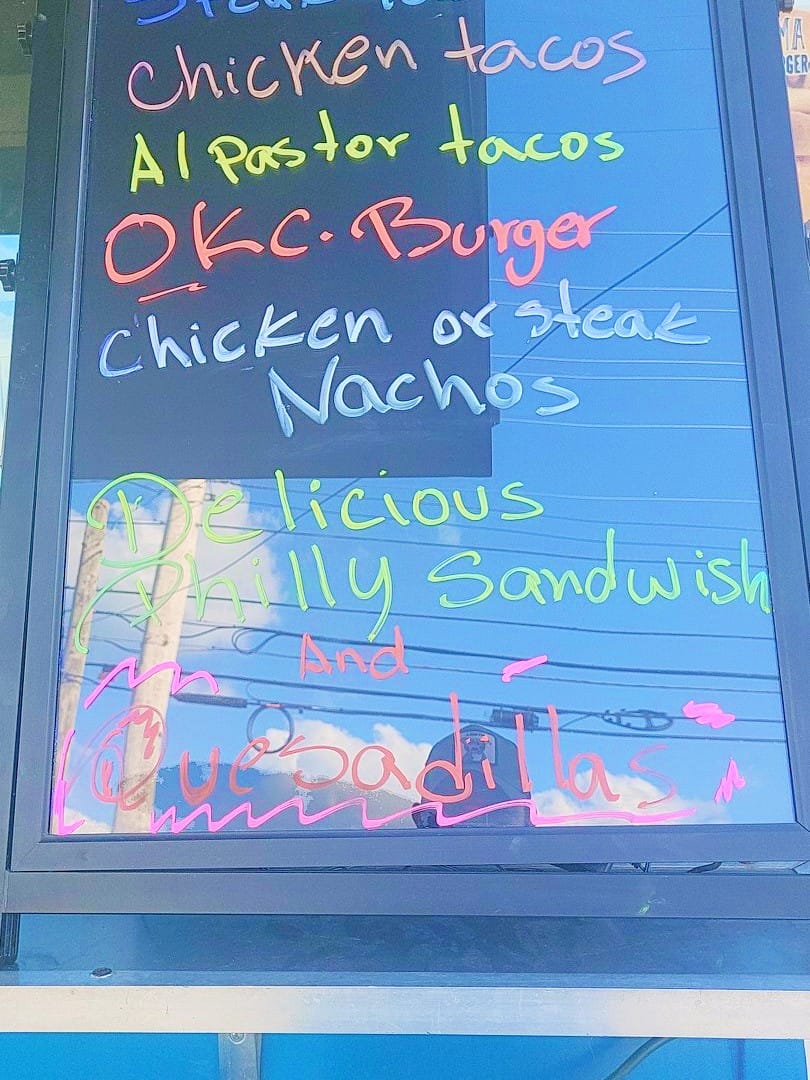 Chicken tacos
Al Pastor tacos
OKC. Burger
Chicken or steak
Nachos
Delicious
Philly Sandwish
And
Quesadillas